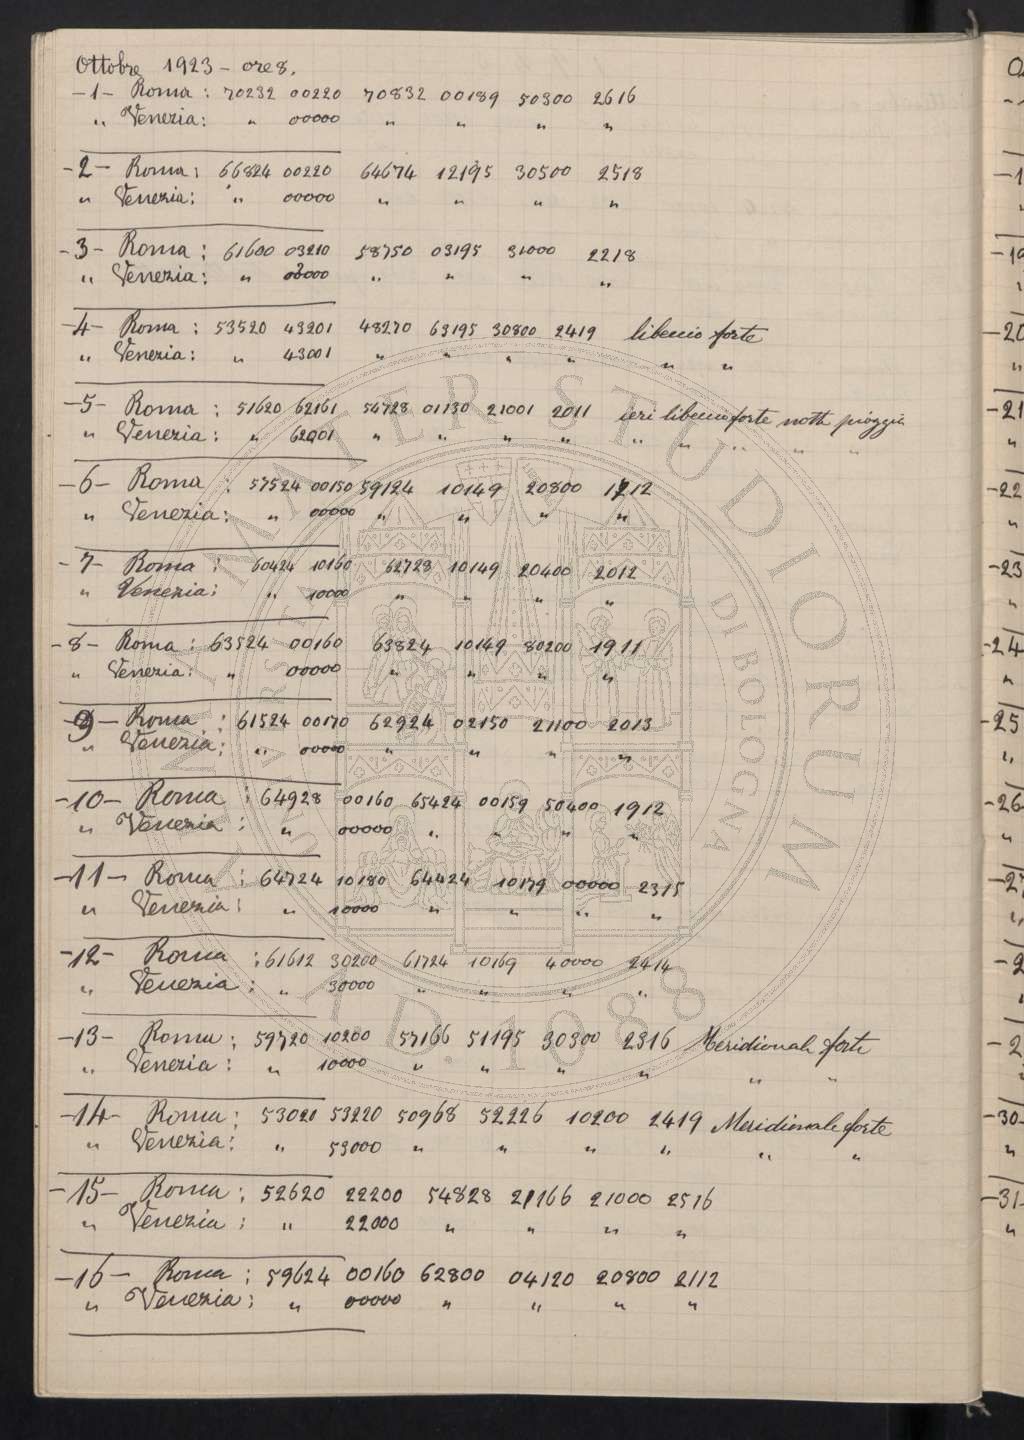 Ottobre 1923 - ore 8.
-1- Roma : 70232 00220 70832 00189 50300 2616
„ Venezia : „ 00000 „ „ „ „
-2- Roma : 66824 00220 64674 12195 30500 2518
„ Venezia : „ 00000 „ „ „ „
-3- Roma : 61600 03210 58750 03195 31000 2218
„ Venezia : „ 03000 „ „ „ „
-4- Roma : 53520 43201 48270 63195 30800 2419 libeccio forte
„ Venezia : „ 43001 „ „ „ „ „ „
-5- Roma : 51620 62161 54728 01130 21001 2011 ieri libeccio forte notte pioggia
„ Venezia : „ 62001 „ „ „ „ „ „ „ „ „
-6- Roma : 57524 00150 59124 10149 20800 1712
„ Venezia : „ 00000 „ „ „ „
-7- Roma : 60424 10160 62728 10149 20400 2012
„ Venezia : „ 10000 „ „ „ „
-8- Roma : 63524 00160 63824 10149 80200 1911
„ Venezia : „ 00000 „ „ „ „
-9- Roma : 61524 00170 62924 02150 21100 2013
„ Venezia : „ 00000 „ „ „ „
-10- Roma : 64928 00160 65424 00159 50400 1912
„ Venezia : „ 00000 „ „ „ „
-11- Roma : 64724 10180 64424 10179 00000 2315
„ Venezia : „ 10000 „ „ „ „
-12- Roma : 61612 30200 61724 10169 40000 2414
„ Venezia : „ 30000 „ „ „ „
-13- Roma : 59720 10200 57166 51195 30300 2316 Meridionale forte
„ Venezia : „ 10000 „ „ „ „ „ „
-14- Roma : 53020 53220 50968 52226 10200 2419 Meridionale forte
„ Venezia : „ 53000 „ „ „ „ „ „
-15- Roma : 52620 22200 54828 21166 21000 2516
„ Venezia : „ 22000 „ „ „ „
-16- Roma : 59624 00160 62800 04120 20800 2112
„ Venezia : „ 00000 „ „ „ „
ALMA MATER STUDIORUM
UNIVERSITÀ DI BOLOGNA
A.D. 1088